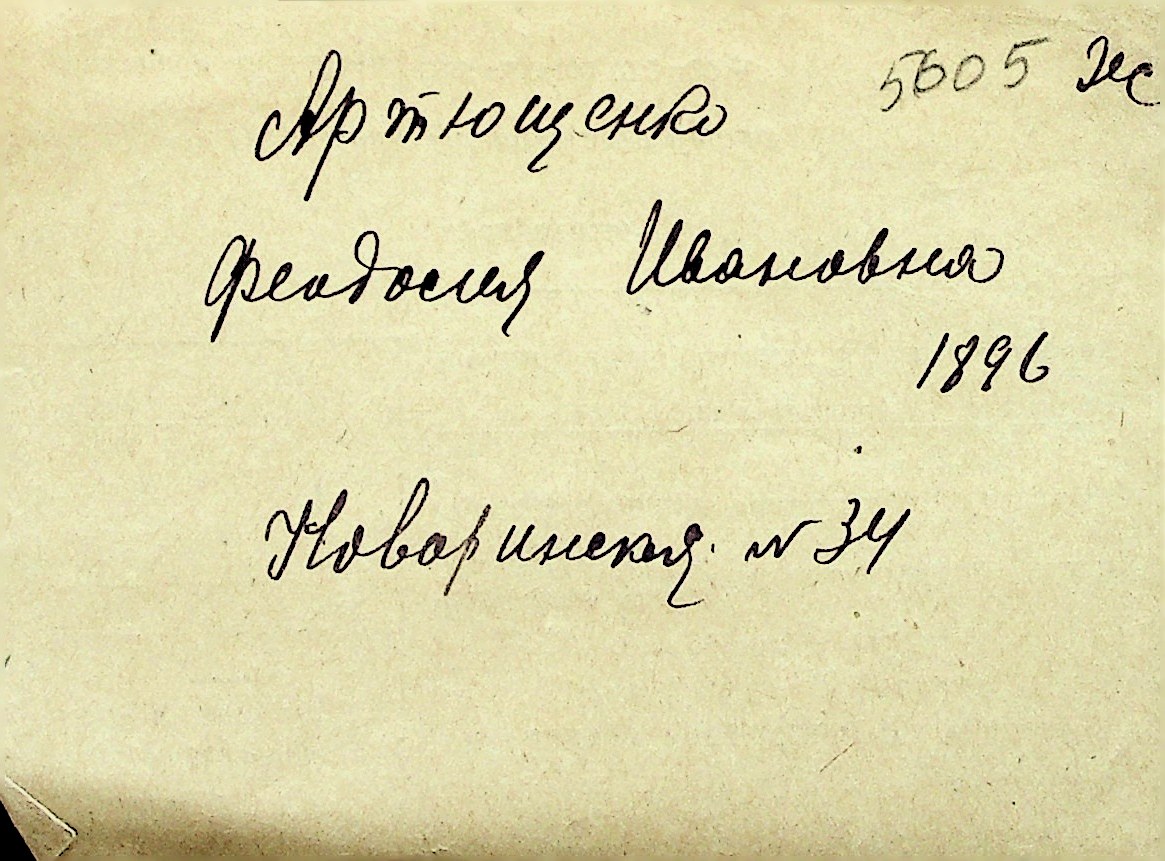 5605 Ж
Артющенко
Феодосия Ивановна
1896
Новаринская № 34